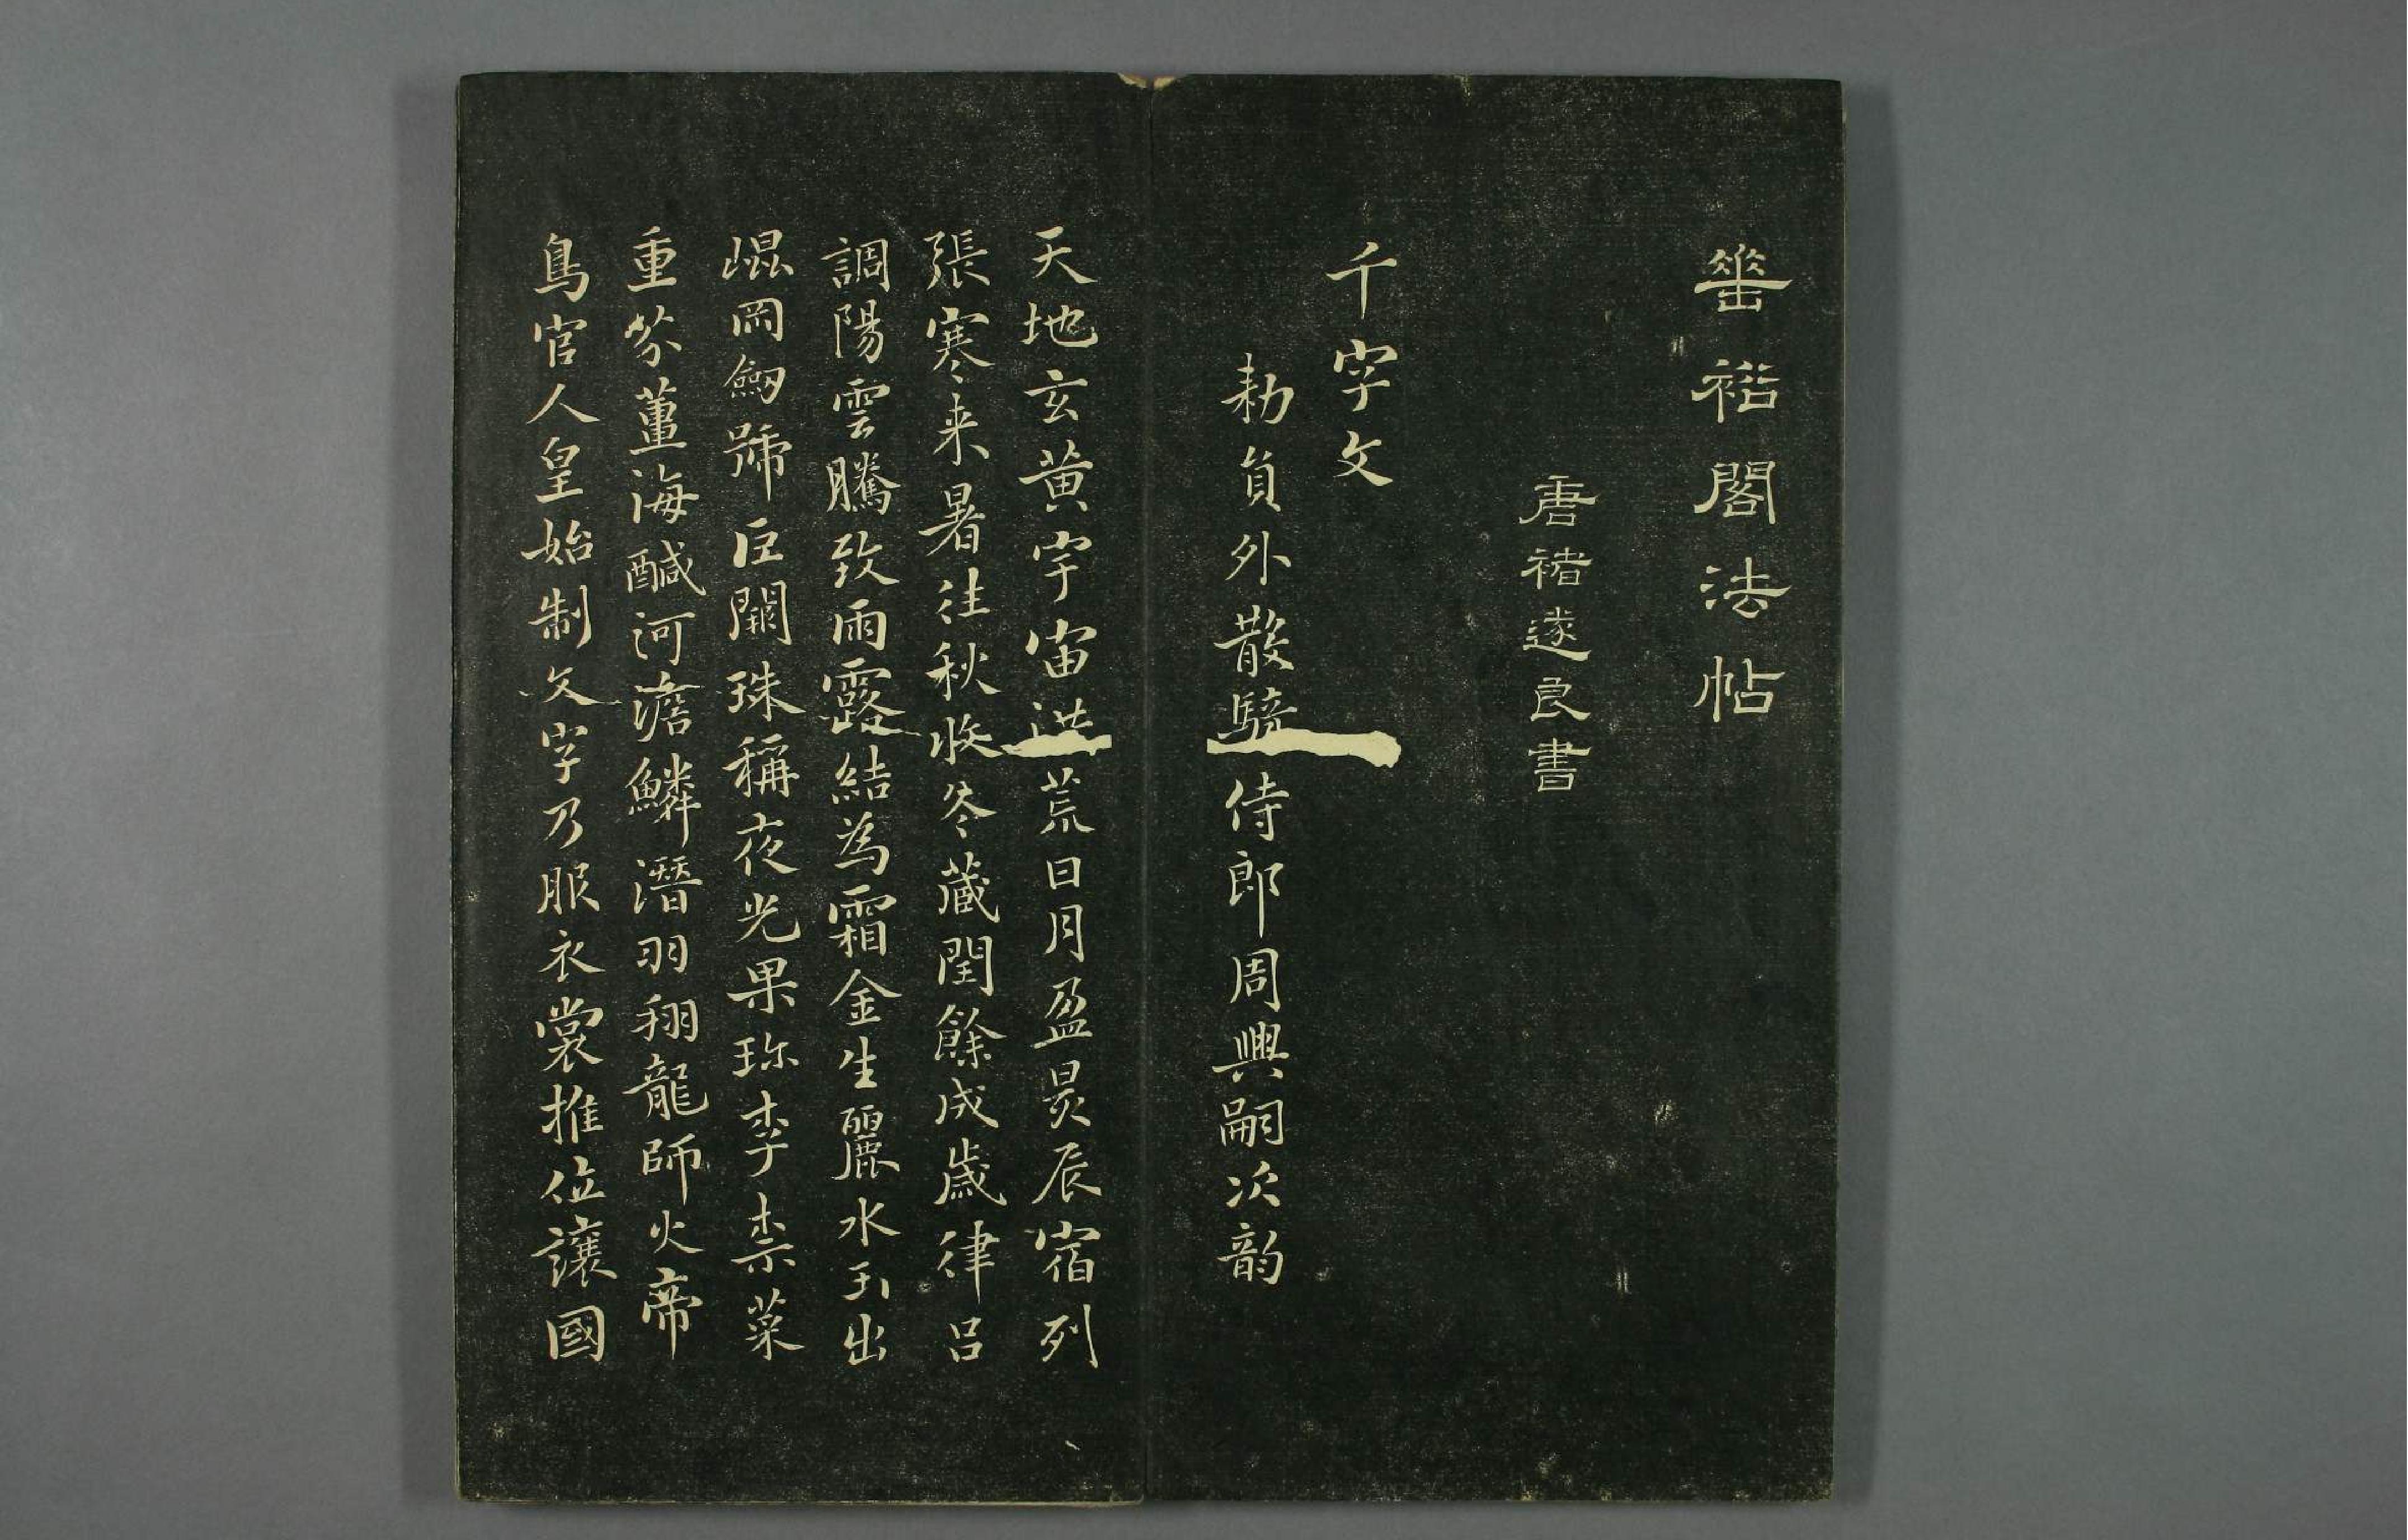 華裕閣法帖
唐褚遂良書
千字文
勅員外散騎侍郎周興嗣次韵
天地玄黃宇宙洪荒日月盈昃辰宿列
張寒来暑往秋收冬藏閏餘成歲律呂
調陽雲騰致雨露結為霜金生麗水玉出
崐岡劒號巨闕珠稱夜光果珎李柰菜
重芥薑海醎河澹鱗潛羽翔龍師火帝
鳥官人皇始制文字乃服衣裳推位讓國